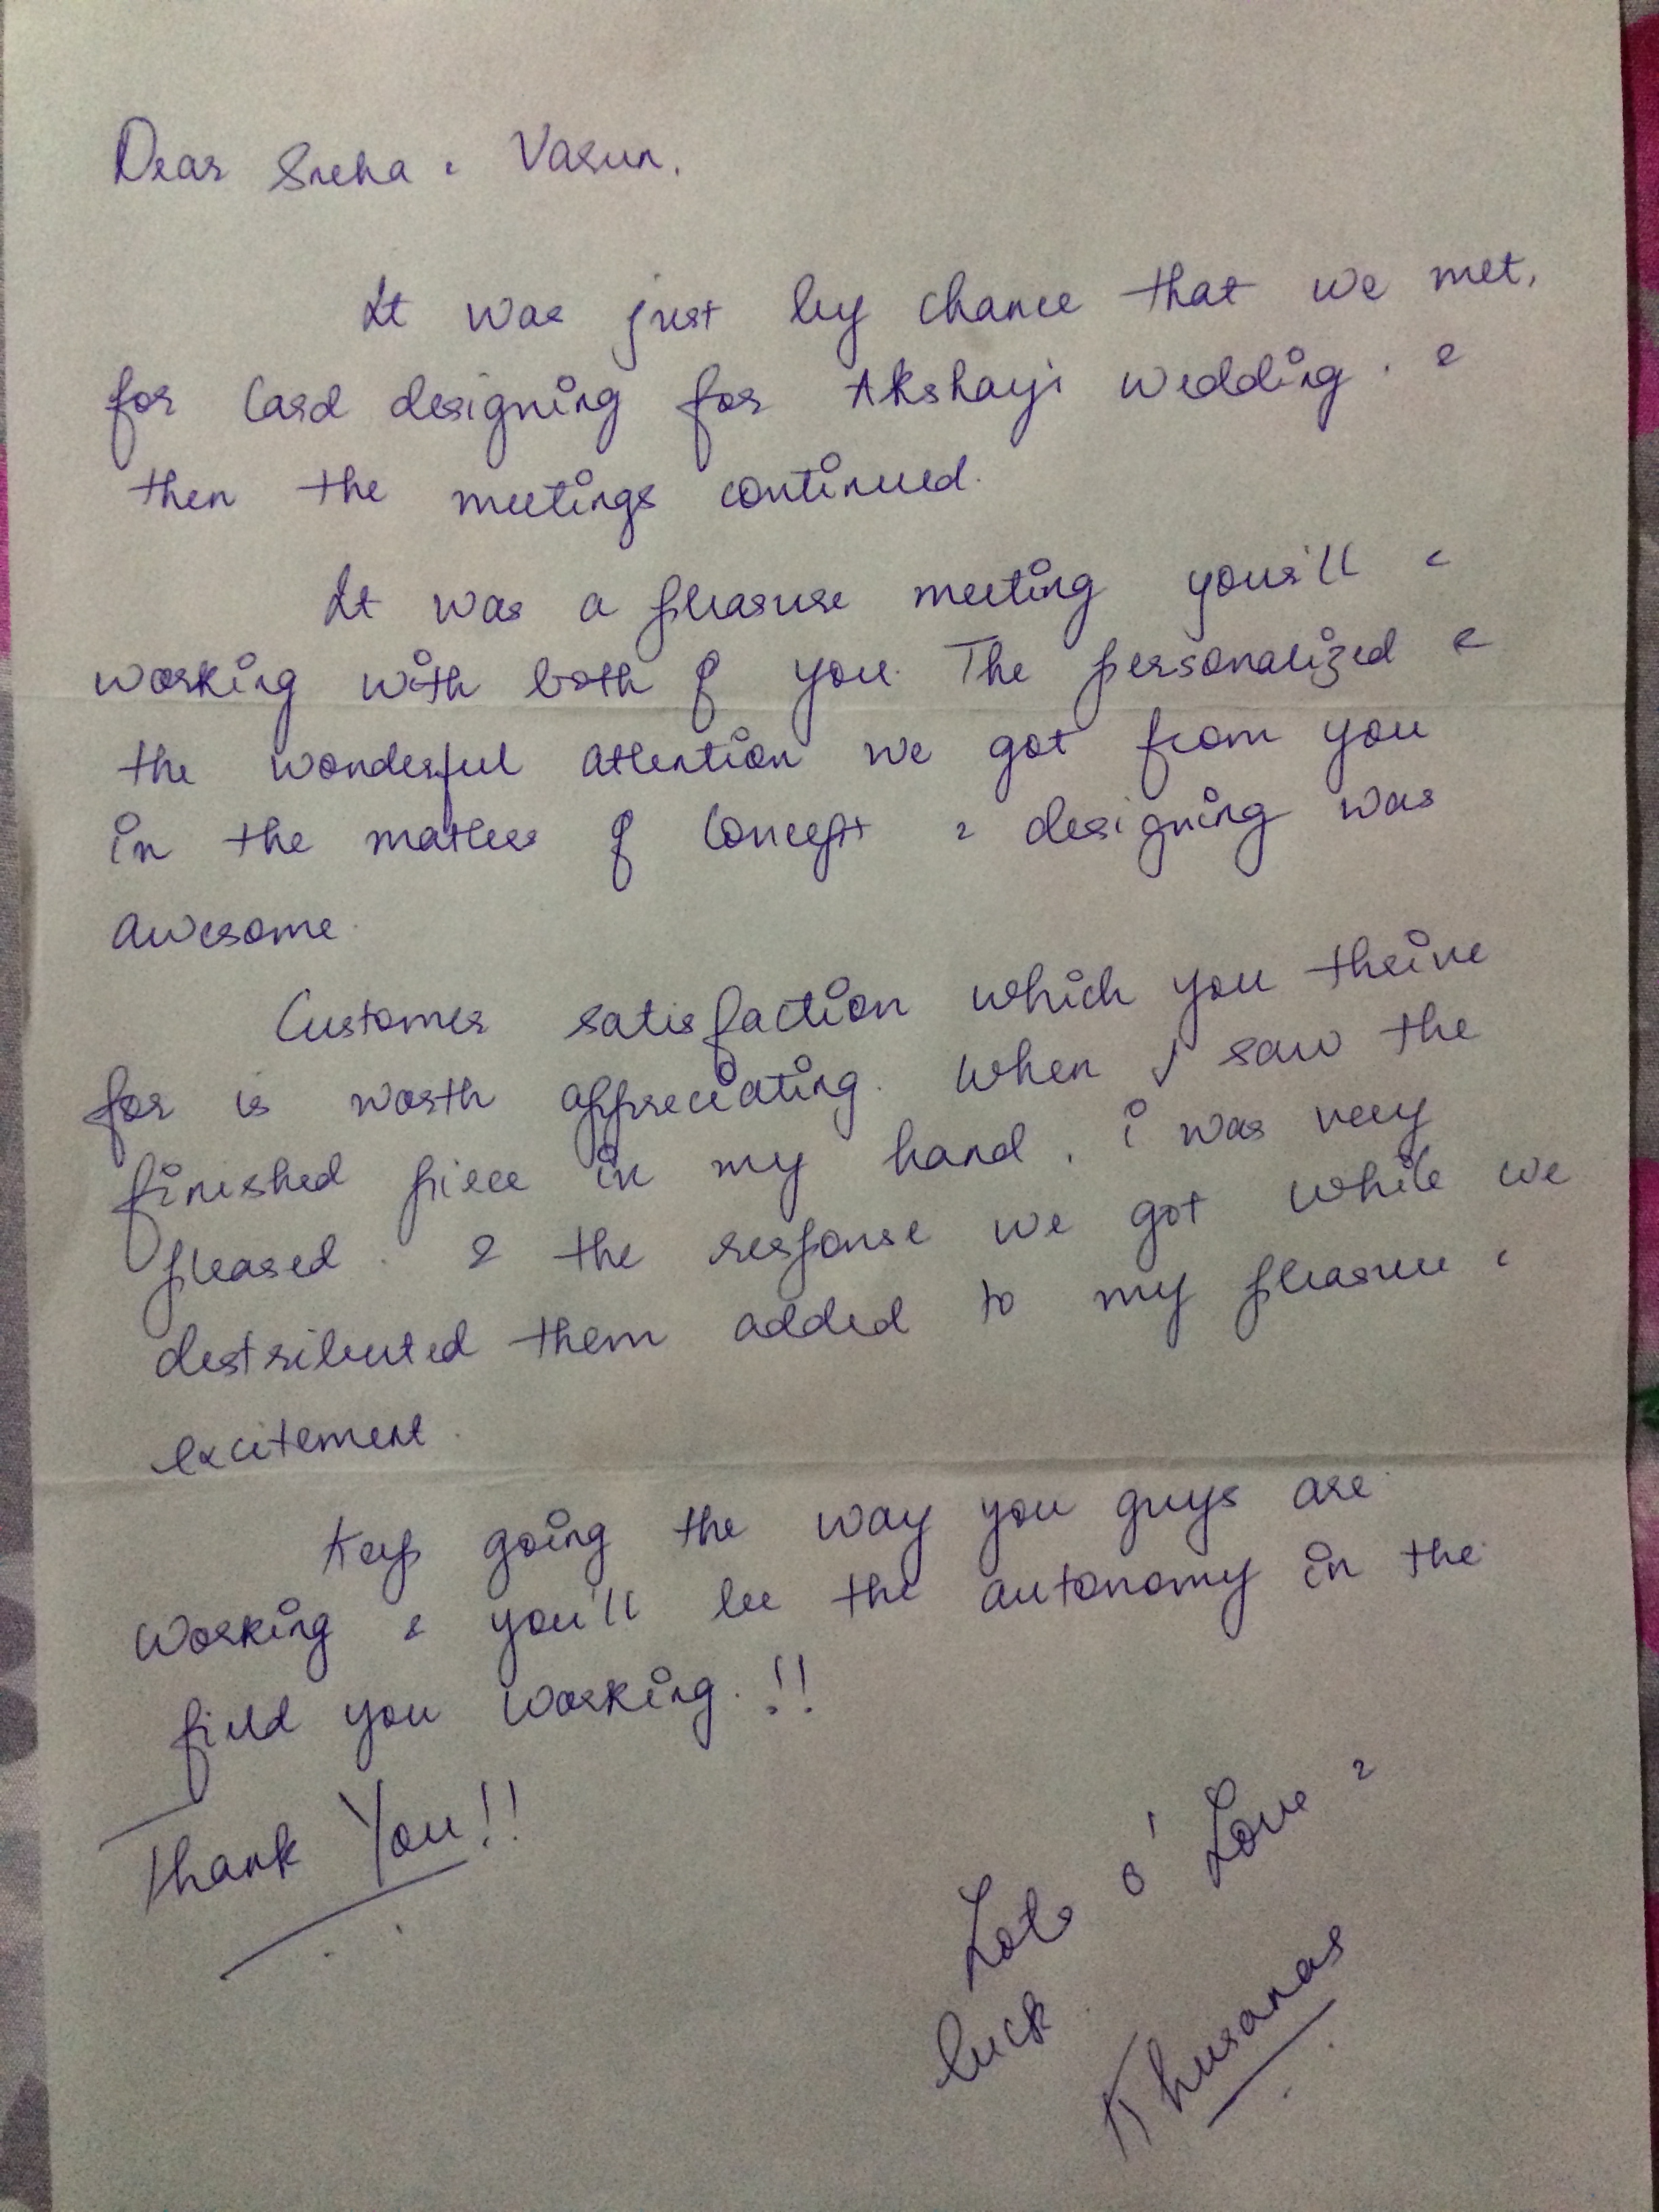 Dear Sneha & Varun.
It was just by chance that we met,
for Card designing for Akshay's wedding. &
then the meetings continued.
It was a pleasure meeting your'll &
working with both of you. The personalized &
the wonderful attention we got from you
in the matters of Concept & designing was
awesome.
Customer satisfaction which you thrive
for is worth appreciating. When I saw the
finished piece in my hand, i was very
pleased. & the response we got while we
destributed them added to my pleasure &
excitement.
Keep going the way you guys are
working & you'll be the autonomy in the
field you working.!!
Thank You!!
Lots o' Love &
luck.
Khuranas